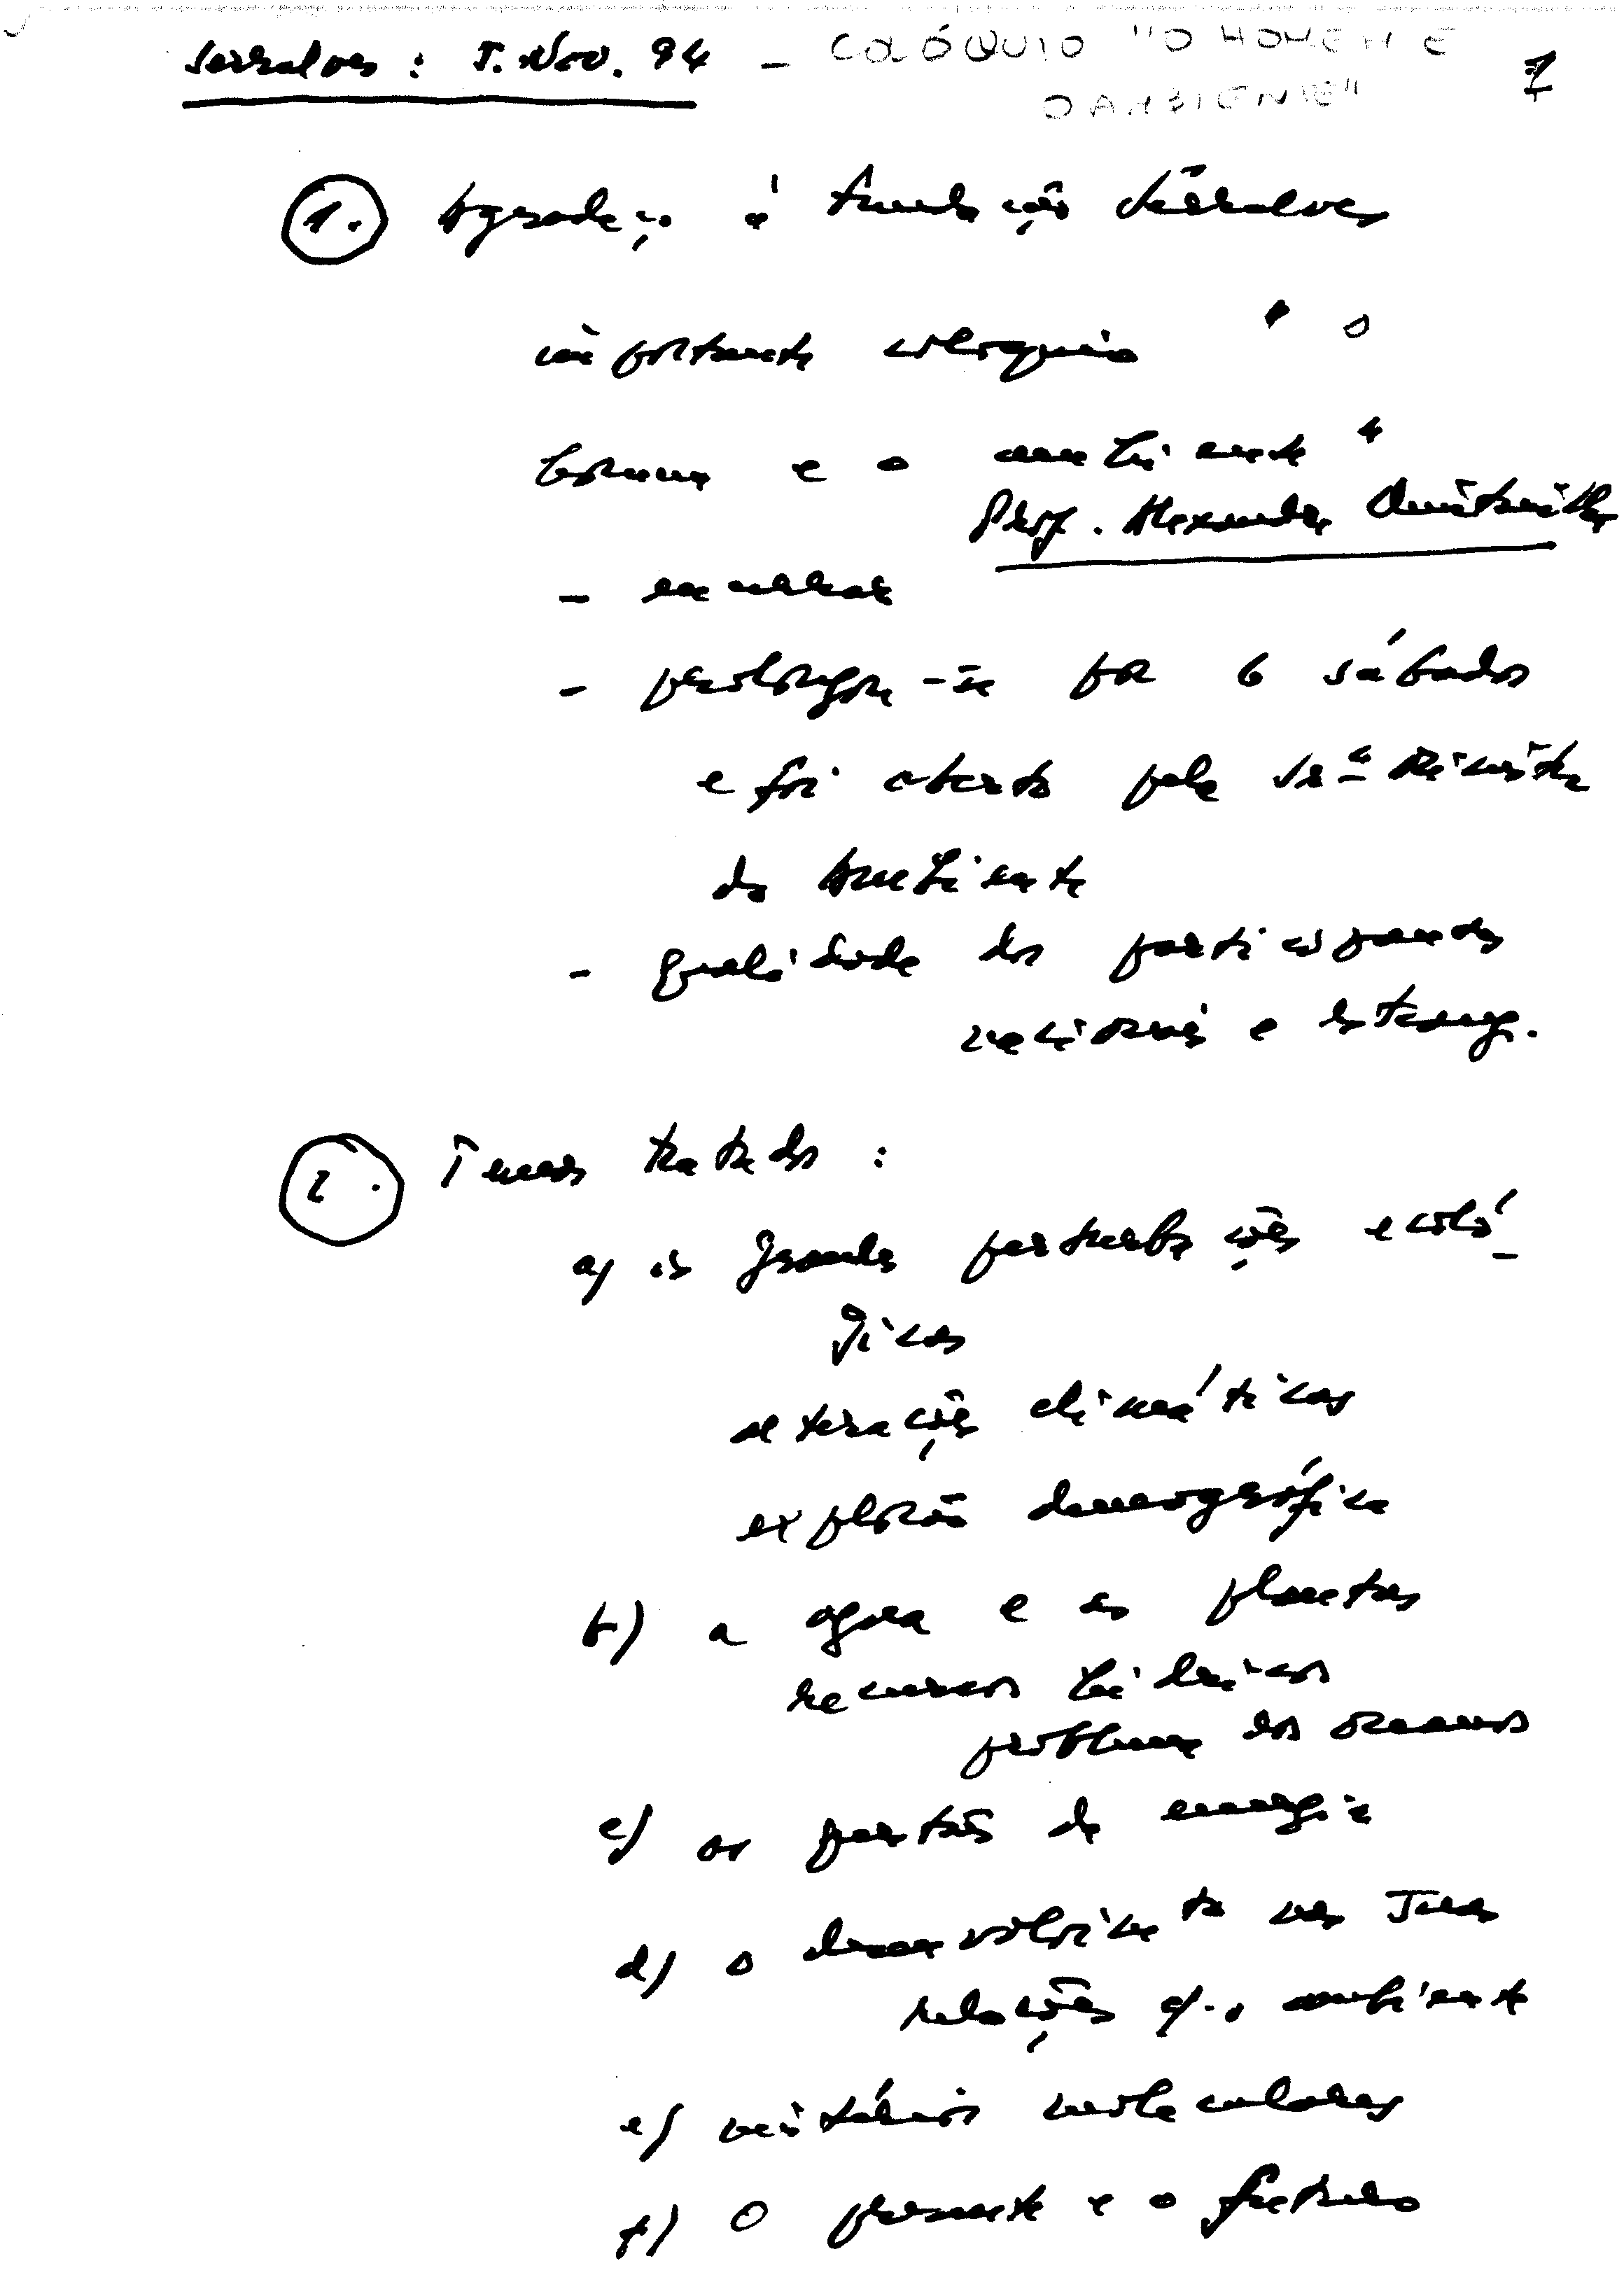 Serralves : 5. Nov. 94 - COLÓQUIO "O HOMEM E
O AMBIENTE"
1
1. Agradeço à Fundação Serralves
importante colóquio " o
homem e o ambiente "
Prof. Alexandre Quintanilha
- encerrar
- prolongou-se por 6 sábados
e foi aberto pela Srª Ministra
do Ambiente
- qualidade dos participantes
nacionais e estrang.
2. Temas tratados :
a) as grandes perturbações ecoló-
gicas
alterações climáticas
explosão demográfica
b) a água e as plantas
recursos hídricos
problema dos oceanos
c) as questões da energia
d) o desenvolvimeto nas suas
relações c/ o ambiente
e) mistérios moleculares
f) O presente e o futuro